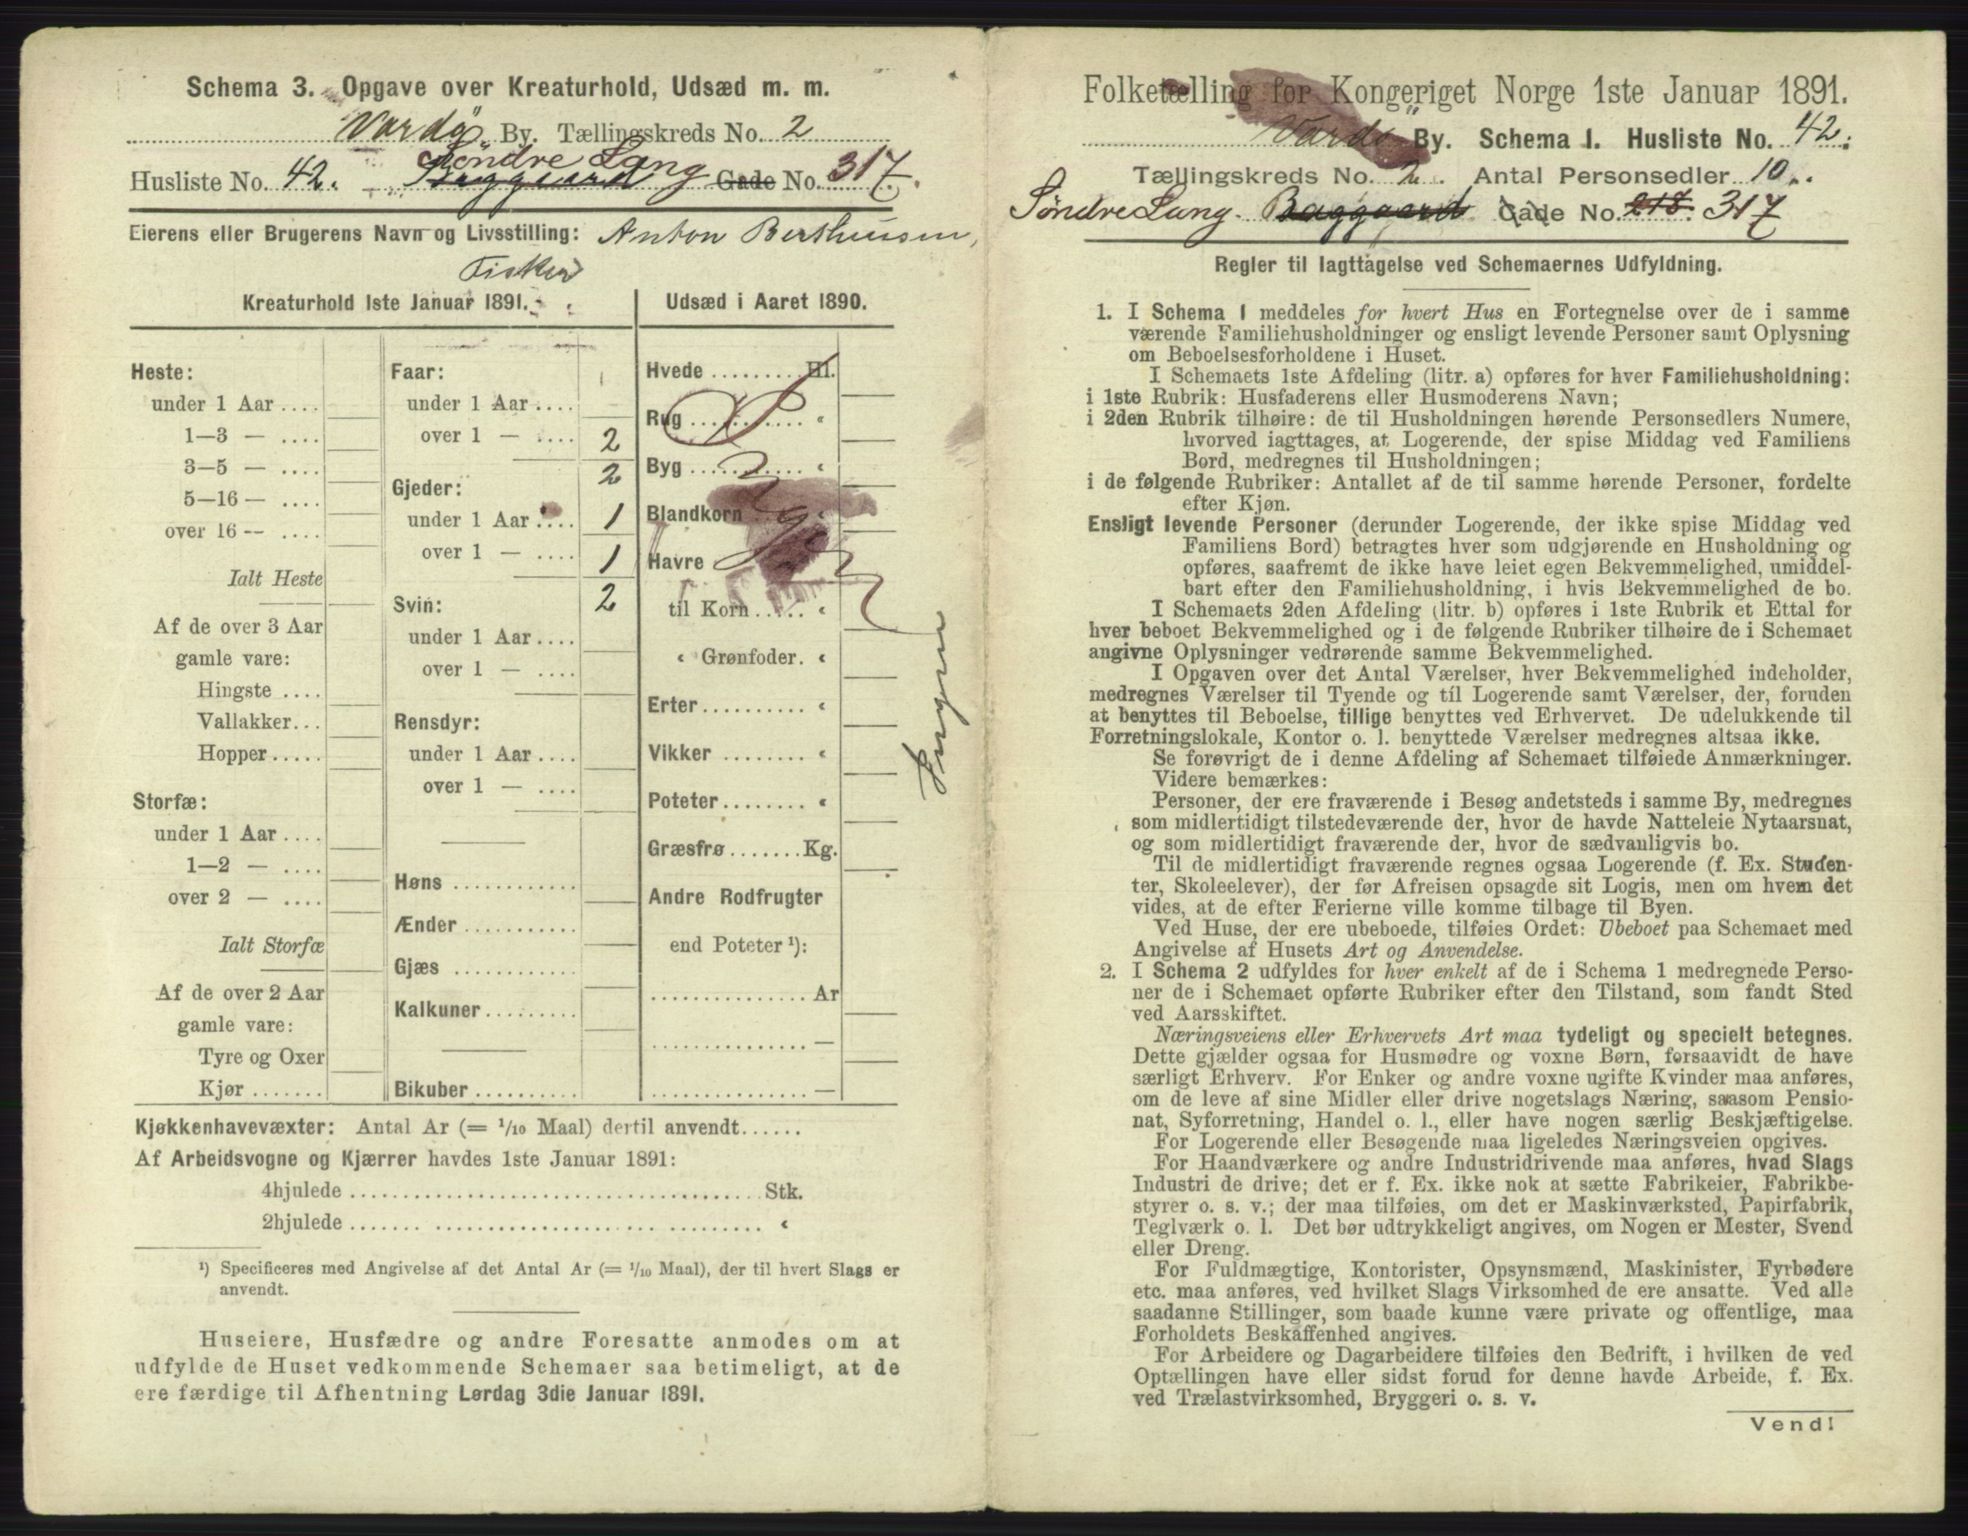 Schema 3. Opgave over Kreaturhold, Udsæd m. m.
Vardø By. Tællingskreds No. 2
Søndre Lang
Husliste No. 42. Baggaard Gade No. 317.
Eierens eller Brugerens Navn og Livsstilling: Anton Berthiusen,
Fisker
Kreaturhold 1ste Januar 1891.
Heste:
under 1 Aar ....
1—3 — ....
3—5 — ....
5—16 — ....
over 16 — ....
Ialt Heste
Af de over 3 Aar
gamle vare:
Hingste ....
Vallakker...
Hopper.....
Storfæ:
under 1 Aar ....
1—2 — ....
over 2 — ....
Ialt Storfæ
Af de over 2 Aar
gamle vare:
Tyre og Oxer
Kjør .......
Faar:
under 1 Aar ....
over 1 — .... 2
2
Gjeder:
under 1 Aar .... 1
over 1 — .... 1
Svin: 2
under 1 Aar....
over 1 — ....
Rensdyr:
under 1 Aar....
over 1 — ....
Høns ............
Ænder...........
Gjæs ............
Kalkuner.........
Bikuber ..........
Udsæd i Aaret 1890.
Hvede ......... Hl.
Rug ........... “
Byg ........... “
Blandkorn .... “
Havre
til Korn ..... “
“ Grønfoder. “
Erter.......... “
Vikker ........ “
Poteter........ “
Græsfrø ....... Kg.
Andre Rodfrugter
end Poteter ¹):
............... Ar
............... —
............... —
Ingen
Kjøkkenhavevæxter: Antal Ar (= 1/10 Maal) dertil anvendt......
Af Arbeidsvogne og Kjærrer havdes 1ste Januar 1891:
4hjulede ........................................ Stk.
2hjulede ........................................ “
¹) Specificeres med Angivelse af det Antal Ar (= 1/10 Maal), der til hvert Slags er
anvendt.
Huseiere, Husfædre og andre Foresatte anmodes om at
udfylde de Huset vedkommende Schemaer saa betimeligt, at de
ere færdige til Afhentning Lørdag 3die Januar 1891.
Folketælling for Kongeriget Norge 1ste Januar 1891.
Vardø By. Schema 1. Husliste No. 42.
Tællingskreds No. 2. Antal Personsedler 10.
Søndre Lang. Baggaard Gade No. 218. 317
Regler til Iagttagelse ved Schemaernes Udfyldning.
1. I Schema 1 meddeles for hvert Hus en Fortegnelse over de i samme
værende Familiehusholdninger og ensligt levende Personer samt Oplysning
om Beboelsesforholdene i Huset.
I Schemaets 1ste Afdeling (litr. a) opføres for hver Familiehusholdning:
i 1ste Rubrik: Husfaderens eller Husmoderens Navn;
i 2den Rubrik tilhøire: de til Husholdningen hørende Personsedlers Numere,
hvorved iagttages, at Logerende, der spise Middag ved Familiens
Bord, medregnes til Husholdningen;
i de følgende Rubriker: Antallet af de til samme hørende Personer, fordelte
efter Kjøn.
Ensligt levende Personer (derunder Logerende, der ikke spise Middag ved
Familiens Bord) betragtes hver som udgjørende en Husholdning og
opføres, saafremt de ikke have leiet egen Bekvemmelighed, umiddel-
bart efter den Familiehusholdning, i hvis Bekvemmelighed de bo.
I Schemaets 2den Afdeling (litr. b) opføres i 1ste Rubrik et Ettal for
hver beboet Bekvemmelighed og i de følgende Rubriker tilhøire de i Schemaet
angivne Oplysninger vedrørende samme Bekvemmelighed.
I Opgaven over det Antal Værelser, hver Bekvemmelighed indeholder,
medregnes Værelser til Tyende og til Logerende samt Værelser, der, foruden
at benyttes til Beboelse, tillige benyttes ved Erhvervet. De udelukkende til
Forretningslokale, Kontor o. l. benyttede Værelser medregnes altsaa ikke.
Se forøvrigt de i denne Afdeling af Schemaet tilføiede Anmærkninger.
Videre bemærkes:
Personer, der ere fraværende i Besøg andetsteds i samme By, medregnes
som midlertidigt tilstedeværende der, hvor de havde Natteleie Nytaarsnat,
og som midlertidigt fraværende der, hvor de sædvanligvis bo.
Til de midlertidigt fraværende regnes ogsaa Logerende (f. Ex. Studen-
ter, Skoleelever), der før Afreisen opsagde sit Logis, men om hvem det
vides, at de efter Ferierne ville komme tilbage til Byen.
Ved Huse, der ere ubeboede, tilføies Ordet: Ubeboet paa Schemaet med
Angivelse af Husets Art og Anvendelse.
2. I Schema 2 udfyldes for hver enkelt af de i Schema 1 medregnede Perso-
ner de i Schemaet opførte Rubriker efter den Tilstand, som fandt Sted
ved Aarsskiftet.
Næringsveiens eller Erhvervets Art maa tydeligt og specielt betegnes.
Dette gjælder ogsaa for Husmødre og voxne Børn, forsaavidt de have
særligt Erhverv. For Enker og andre voxne ugifte Kvinder maa anføres,
om de leve af sine Midler eller drive nogetslags Næring, saasom Pensio-
nat, Syforretning, Handel o. l., eller have nogen særlig Beskjæftigelse.
For Logerende eller Besøgende maa ligeledes Næringsveien opgives.
For Haandværkere og andre Industridrivende maa anføres, hvad Slags
Industri de drive; det er f. Ex. ikke nok at sætte Fabrikeier, Fabrikbe-
styrer o. s. v.; der maa tilføies, om det er Maskinværksted, Papirfabrik,
Teglværk o. l. Det bør udtrykkeligt angives, om Nogen er Mester, Svend
eller Dreng.
For Fuldmægtige, Kontorister, Opsynsmænd, Maskinister, Fyrbødere
etc. maa anføres, ved hvilket Slags Virksomhed de ere ansatte. Ved alle
saadanne Stillinger, som baade kunne være private og offentlige, maa
Forholdets Beskaffenhed angives.
For Arbeidere og Dagarbeidere tilføies den Bedrift, i hvilken de ved
Optællingen have eller sidst forud for denne havde Arbeide, f. Ex.
ved Trælastvirksomhed, Bryggeri o. s. v.
Vend!